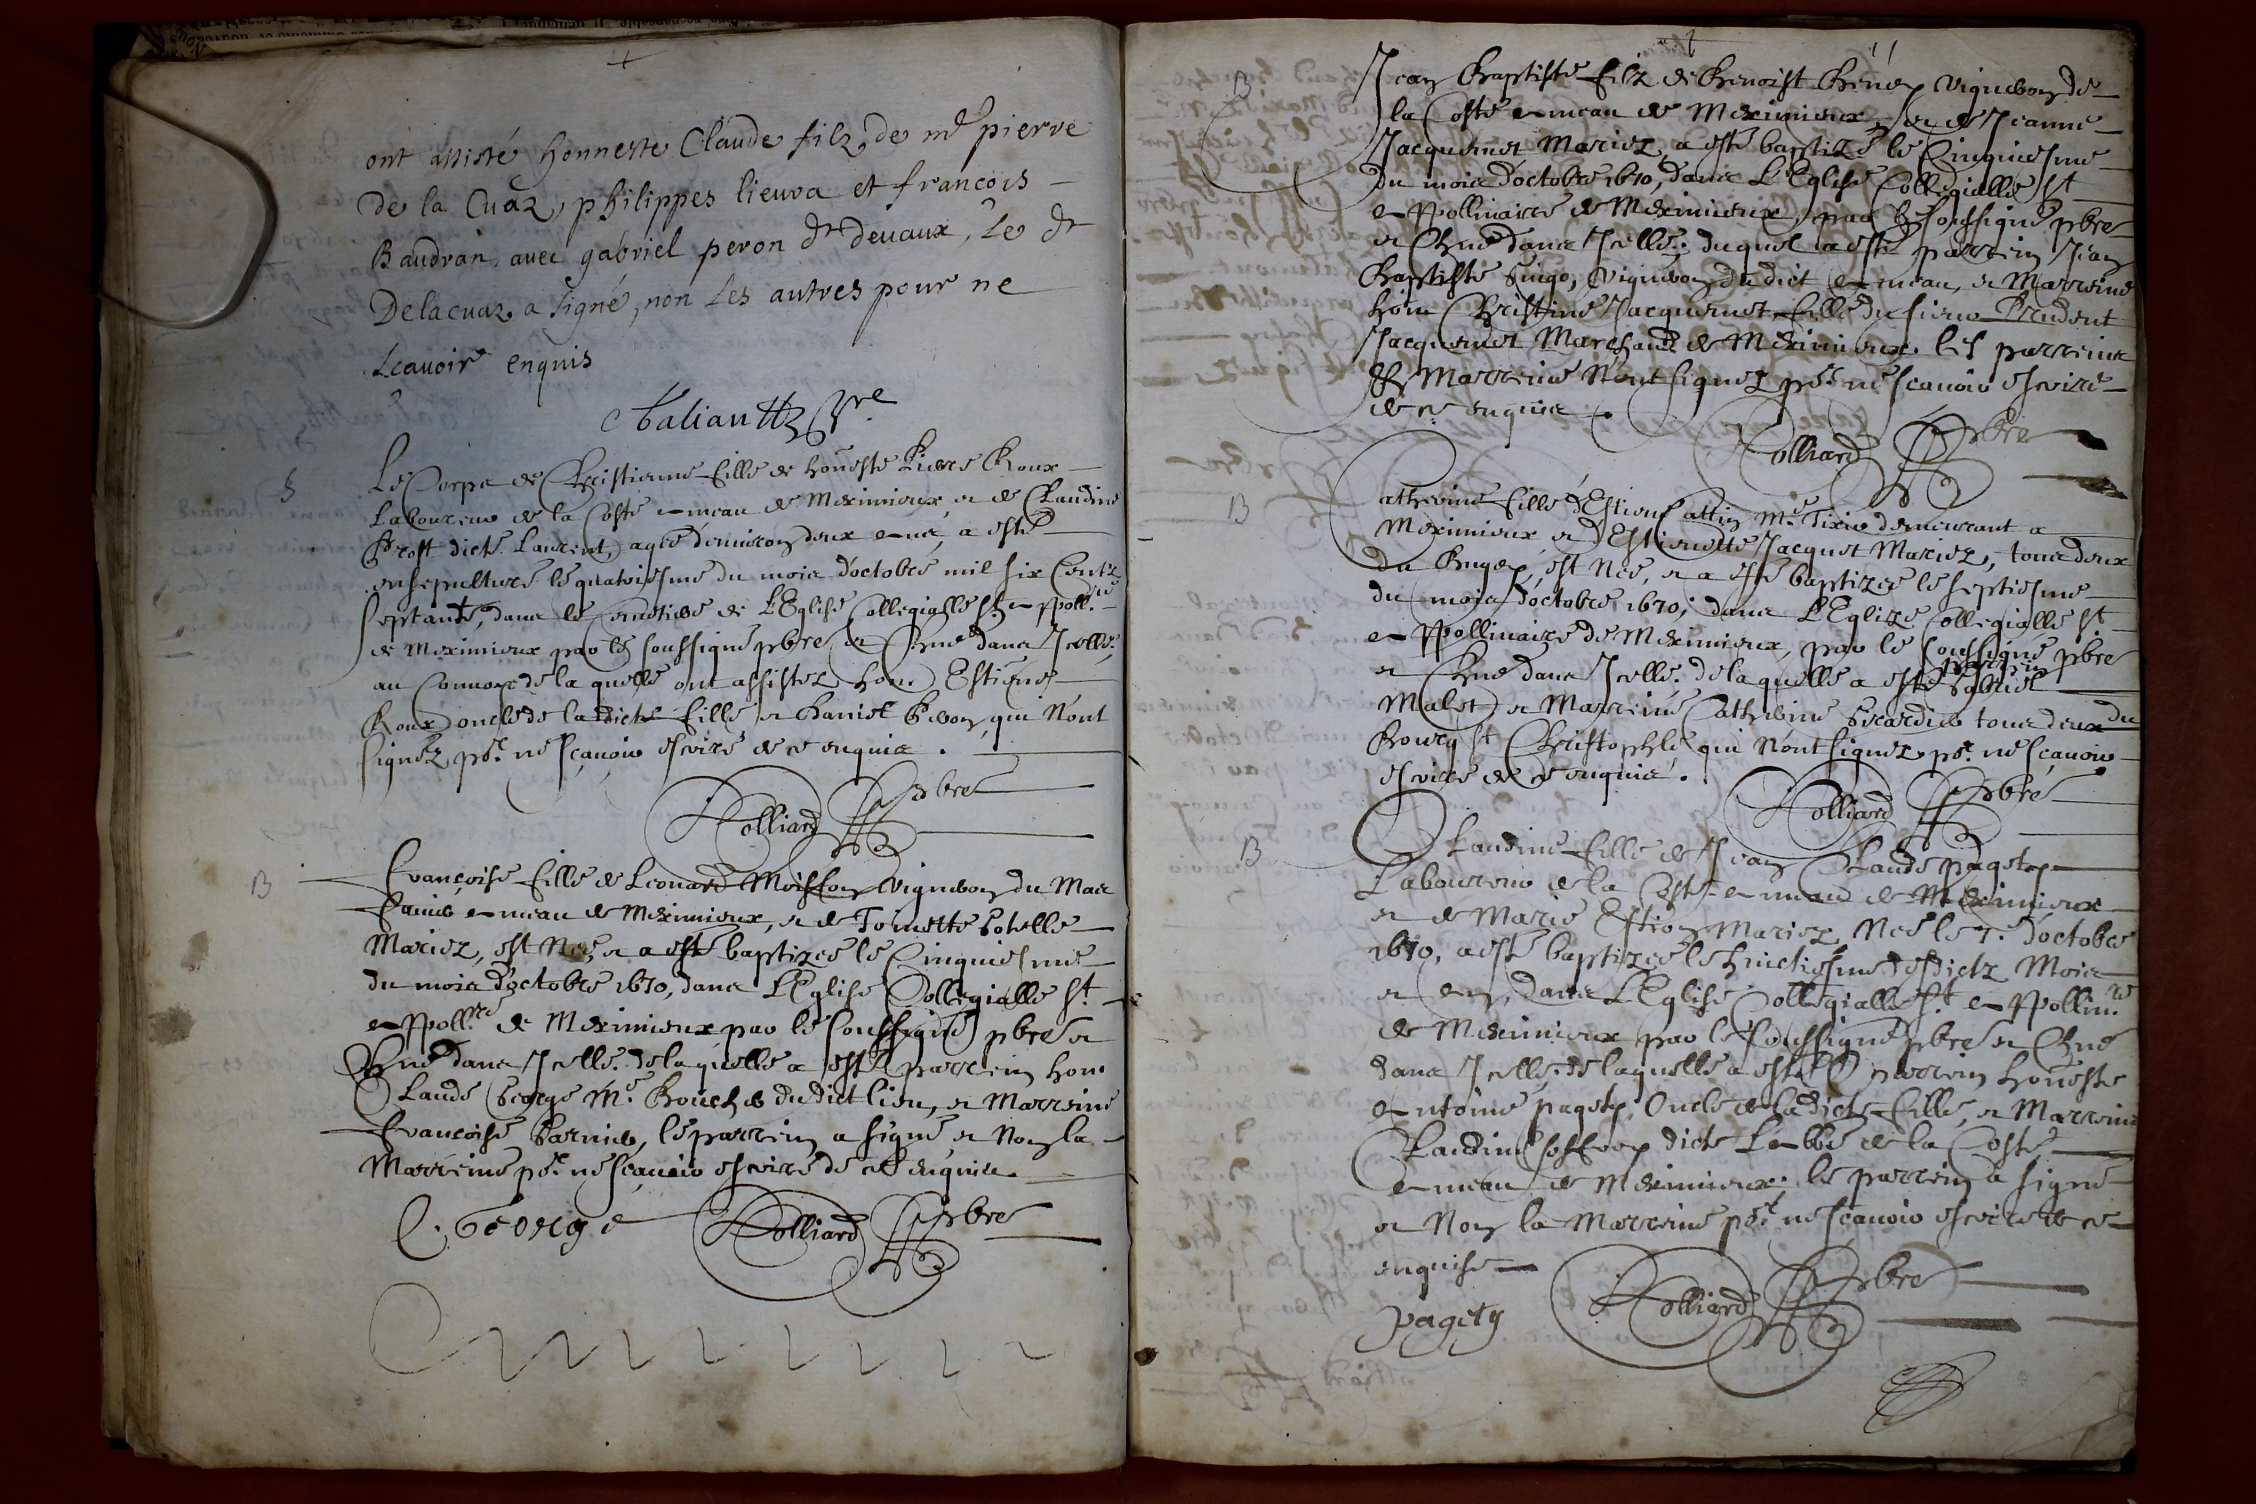 ont assisté honneste Claude filz de me pierre
De la Cuaz, philippes lieura et francois
Baudran, avec gabriel peron dt devaux, Le dt
Delacuaz a signé, non les autres pour ne
scavoir enquis
pbre
S
Le Corps de Christienne fille de honeste Roux
Laboureur de la Coste ameau de Meximieux, et de Claudine
Prost dicte Laurent, agee d'environ deux ans, a esté
ensepulturé le quatriesme du mois d'octobre mil six Centz
septante, dans le Cimetiere de L'Eglise Collegialle St Appoll.re
de Meximieux par le soussigné pbre et Chne dans Icelle.
au Convoy de la quelle ont assistez hon. Estiene
Roux oncle de la dicte fille et qui N'ont
signéz pr. ne sçavoir escrire de ce enquis.
Rolliard pbre
B
Françoise fille de Leonard Moisson Vigneron du Mas
ameau de Meximieux, et de Tomette
Mariez, est Née, et a esté baptizee le Cinquiesme
du mois d'octobre 1670, dans L'Eglise Collegialle St.
Appoll.re de Meximieux par le soussigné pbre et
Chne dans Icelle. de laquelle a esté parrein hon.
Claude George Me. du dict lieu, et Marreine
Françoise le parrein a signé et Non la
Marreine pr. ne sçavoir escrire de ce enquise.
C. George Rolliard pbre
B
Jean Baptiste filz de Benoist Vigneron de
la Coste ameau de Meximieux, et de Jeanne
Jacquemet Mariez, a esté baptizé le Cinquiesme
du mois d'octobre 1670, dans L'Eglise Collegialle St
Appollinaire de Meximieux, par le soussigné pbre
et Chne dans Icelle. duquel a esté parrein Jean
Baptiste Vigneron du dict ameau, et Marreine
hon. Christine Jacquemet fille du sieur
Jacquemet Marchand de Meximieux. les parreins
et Marreine N'ont signez pr. ne sçavoir escrire
de ce enquis.
Rolliard pbre
B
Catherine fille d'Estiene Me. demeurant a
Meximieux et d'Estienette Jacquet Mariez, tous deux
du Bugey, est Née, et a esté baptizee le septiesme
du mois d'octobre 1670, dans L'Eglize Collegialle St
Appollinaire de Meximieux, par le soussigné pbre
et Chne dans Icelle. de laquelle a esté parrein Gabriel
Malet et Marreine Catherine tous deux du
Bourg St Christophle qui N'ont signez pr. ne sçavoir
escrire de ce enquis.
Rolliard pbre
B
Claudine fille de Jean Claude pagety
Laboureur de la Coste ameau de Meximieux
et de Marie Mariez, Née le 7. d'octobre
1670, a esté baptizee le huictiesme desdictz Mois
et an, dans L'Eglise Collegialle St. Appollin.re
de Meximieux par le soussigné pbre et Chne
dans Icelle. de laquelle a esté parrein honeste
Antoine pagety, Oncle de la dicte fille, et Marreine
Claudine dicte de la Coste
ameau de Meximieux. le parrein a signé
et Non la Marreine pr. ne sçavoir escrire de ce
enquise
pagety Rolliard pbre